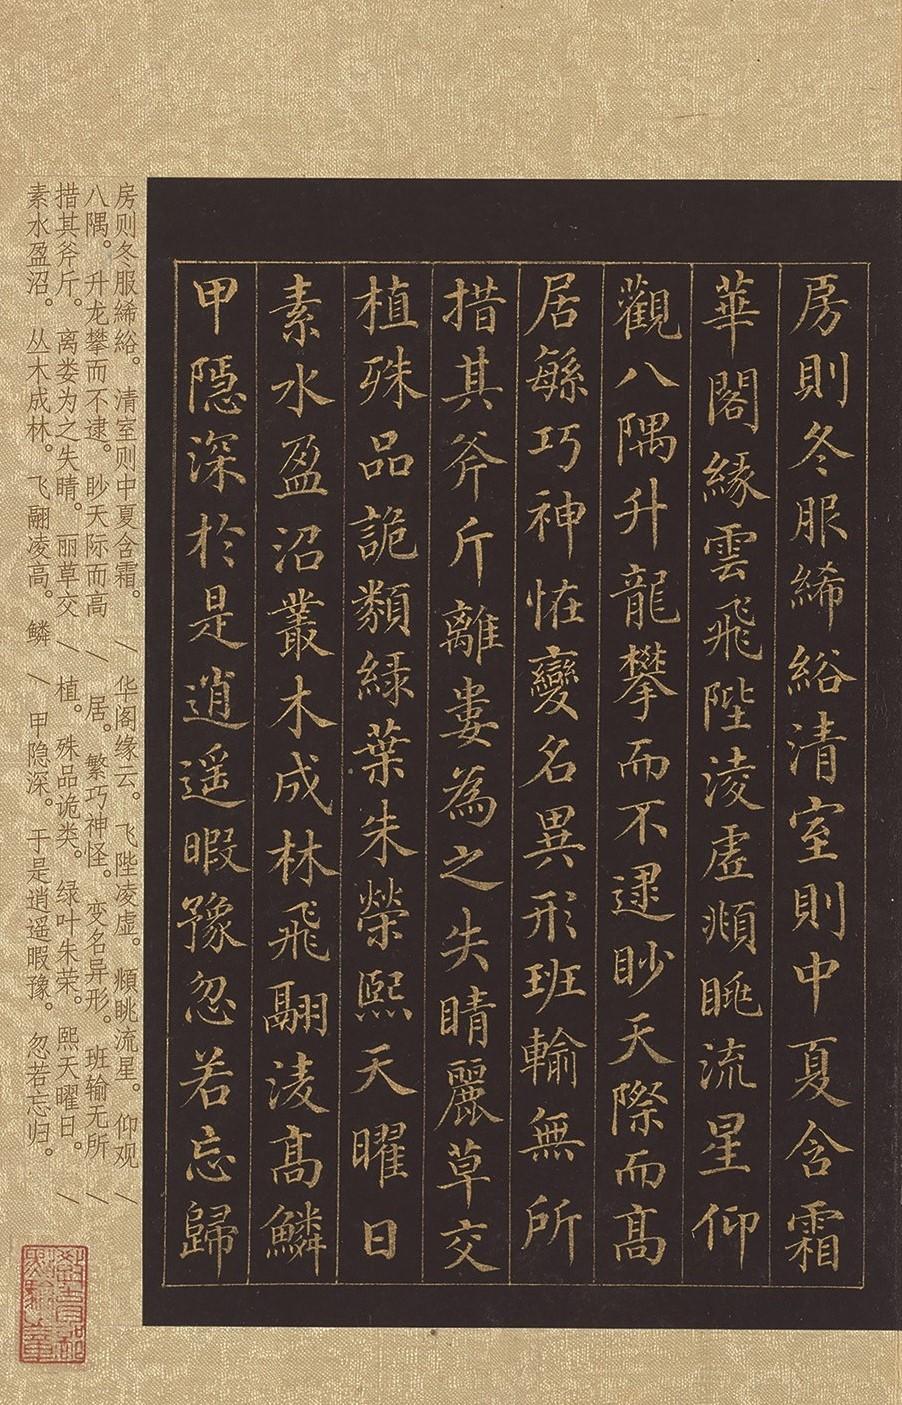 房則冬服絺綌清室則中夏含霜
華閣緣雲飛陛淩虛頫眺流星仰
觀八隅升龍攀而不逮眇天際而高
居緐巧神怪變名異形班輸無所
措其斧斤離婁為之失睛麗草交
植殊品詭類綠葉朱榮熙天曜日
素水盈沼叢木成林飛翮淩高鱗
甲隱深於是逍遙暇豫忽若忘歸
房则冬服絺绤。清室则中夏含霜。/华阁缘云。飞陛凌虚。頫眺流星。仰观/
八隅。升龙攀而不逮。眇天际而高/居。繁巧神怪。变名异形。班输无所/
措其斧斤。离娄为之失睛。丽草交/植。殊品诡类。绿叶朱荣。熙天曜日。/
素水盈沼。丛木成林。飞翮凌高。鳞/甲隐深。于是逍遥暇豫。忽若忘归。